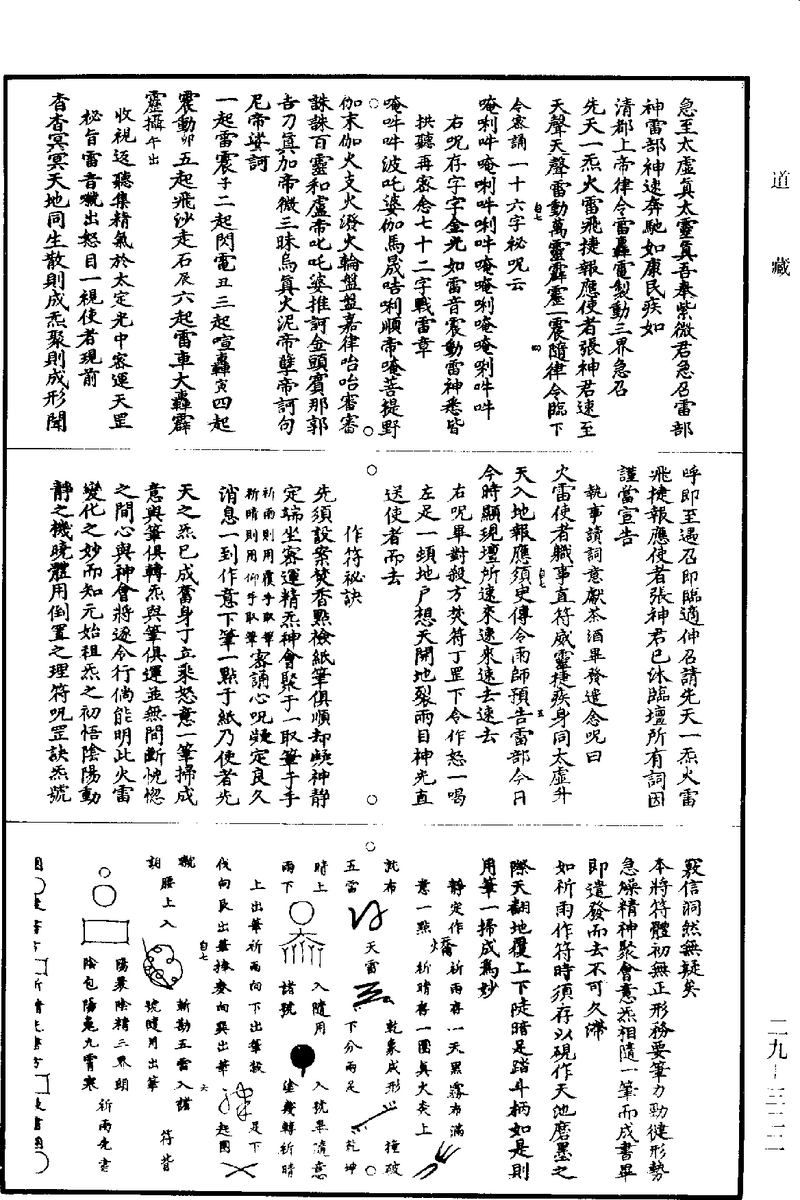 道藏
急至太虛真太靈真吾奉紫微君急召雷部
神雷部神速奔馳如康民疾如
清都上帝律令雷轟電掣動三界急召
先天一炁火雷飛捷報應使者張神君速至
天聲天聲雷動萬靈霹靂一震隨律令臨下
令密誦一十六字祕咒云
唵唎吽唵唎吽唎吽唵唵唎唵唵唎吽吽
右咒存字字金光如雷音震動雷神悉皆
拱聽再密念七十二字戰雷章
唵吽吽波吒婆伽馬晟咭唎順帝唵菩提野
伽末伽火支火潑火輪盤盤嘉律咍咍審審
誅誅百靈和盧帝叱吒婆推訶金頭賓那郭
吉刀真加帝微三昧烏真火泥帝孽帝訶句
尼帝娑訶
一起雷震子二起閃電丑三起喧轟寅四起
震動卯五起飛沙走石辰六起雷車大轟霹
靈攝午出
收視返聽集精氣於太定光中密運天罡
祕旨雷音𠺕出怒目一視使者現前
杳杳冥冥天地同生散則成炁聚則成形聞
呼即至遇召即臨適伸召請先天一炁火雷
飛捷報應使者張神君已沐臨壇所有詞因
謹當宣告
執事讀詞意獻茶酒畢發遣念咒曰
火雷使者職事直符威靈捷疾身同太虛升
天入地報應須臾傳令雨師預告雷部今日
今時顯現壇所速來速來速去速去
右咒畢對殺方焚符丁罡下令作怒一喝
左足一頓地戶想天開地裂兩目神光直
送使者而去
作符祕訣
先須設案焚香點檢紙筆俱順却凝神靜
定端坐密運精炁神會聚于一取筆于手
祈雨則用覆手取筆祈晴則用仰手取筆密誦心咒凝定良久
消息一到作意下筆一點于紙乃使者先
天之炁已成奮身丁立乘怒意一筆掃成
意與筆俱轉炁與筆俱運並無間斷恍惚
之間心與神會將逐令行倘能明此火雷
變化之妙而知元始祖炁之初悟陰陽動
靜之機曉體用倒置之理符咒罡訣炁號
竅信洞然無疑矣
本將符體初無正形務要筆力勁健形勢
急燥精神聚會意炁相隨一筆而成書畢
即遣發而去不可久滯
如祈雨作符時須存以硯作天池磨墨之
際天翻地覆上下陡暗足踏斗柄如是則
用筆一掃成爲妙
靜定作祈雨存一天黑霧布滿
意一點祈晴存一團真火炎上
乾象成形
撞破
天雷
五雷
下分兩足
乾坤
時上
雨下
入隨用
諸號
入號畢隨意
塗幾轉祈晴
上出筆祈雨向下出筆教
足下
起圓
腰上入
斬勘五雷入諸
號隨用出筆
符背
陽景陰精三界朗
陰包陽兔九霄寒
祈雨先書
二九-三二二